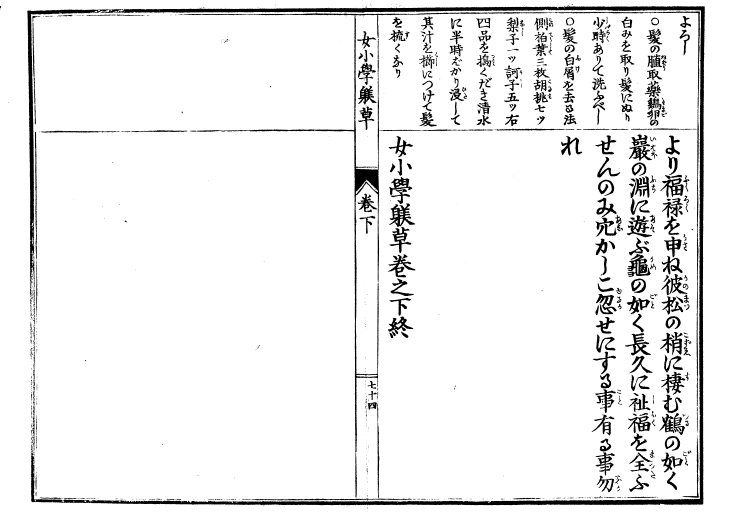 よろし
○髪の脂取薬鶏卵の
白みを取り髪にぬり
少時ありて洗ふべし
○髪の白屑を去る法
側柏葉三枚胡桃七ツ
梨子一ツ訶子五ツ右
四品を搗くだき清水
に半時ばかり浸して
其汁を櫛につけて髪
を梳くなり
より福禄を申ね彼松の梢に棲む鶴の如く
巖の淵に遊ぶ龜の如く長久に祉福を全ふ
せんのみ穴かしこ忽せにする事有る事勿
れ
女小學躾草卷之下終
女小學躾草
卷下
七十四